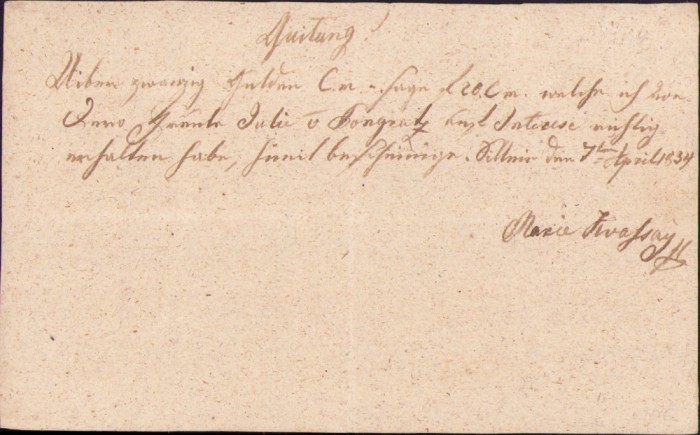 Quitung!
Uiber zwanzig Gulden C.m. - sage f 20 C.m. welche ich von
Fräule Julie v Pongratz Interese richtig
erhalten habe, hiemit bescheinige. Sillein den 7ten April 1834
Marie Kvassay